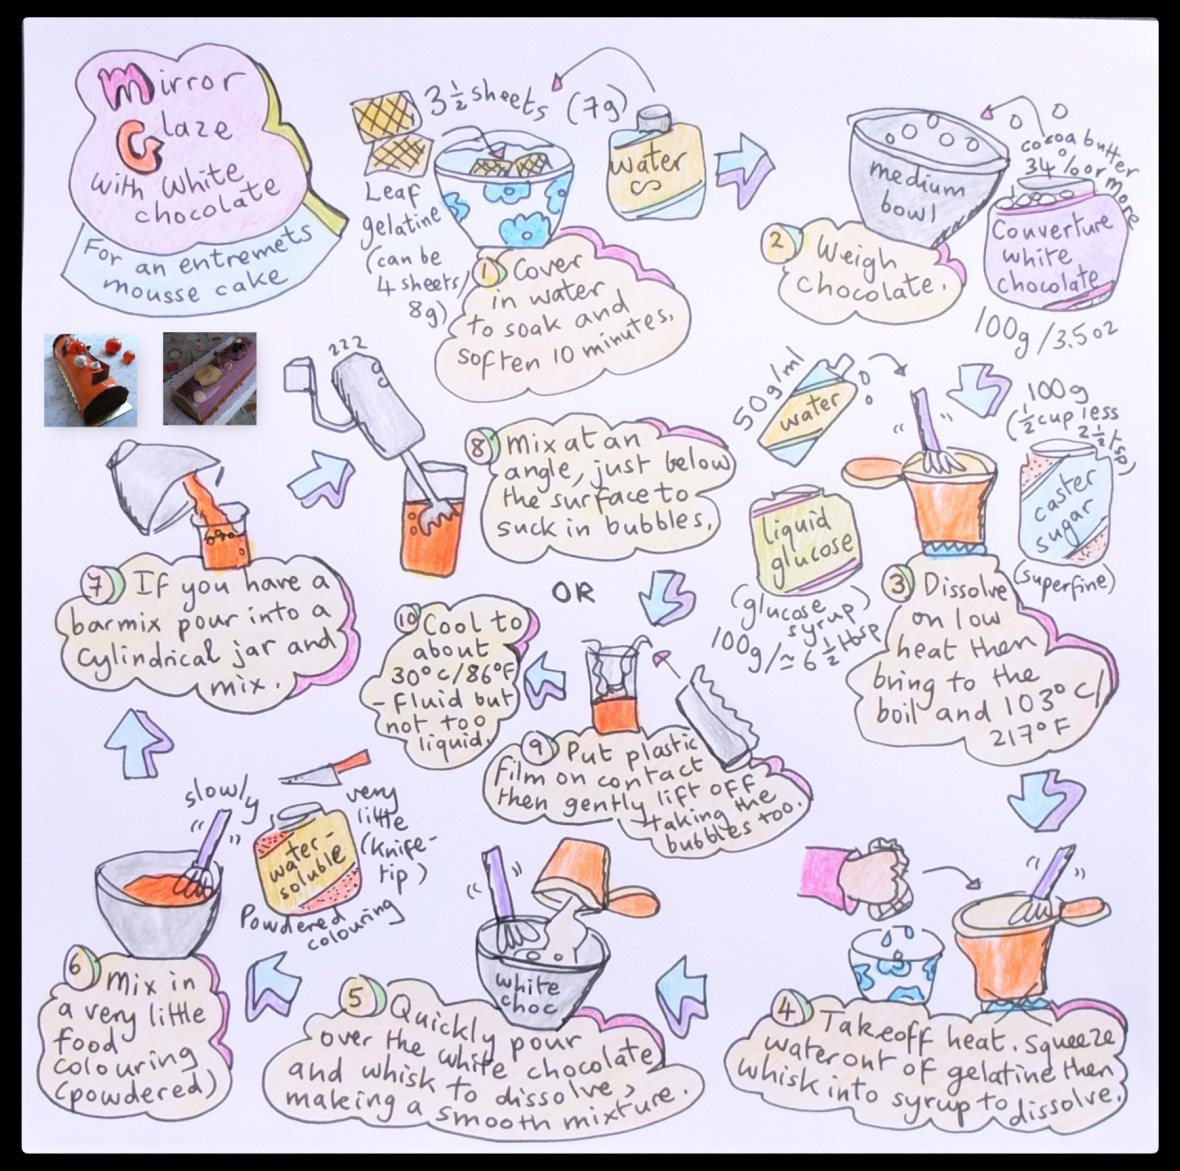 Mirror
Glaze
with white
chocolate
For an entremets
mousse cake
3 1/2 sheets (7g)
Leaf
gelatine
(can be
4 sheets/
8g)
water
1 Cover
in water
to soak and
soften 10 minutes.
medium
bowl
cocoa butter
34% or more
Couverture
white
chocolate
100g/3.5oz
2 Weigh
chocolate.
50g/ml
water
100g
(1/2 cup less
2 1/2 tsp)
caster
sugar
(superfine)
liquid
glucose
(glucose
syrup)
100g/≃ 6 1/2 tbsp
3 Dissolve
on low
heat then
bring to the
boil and 103°C/
217°F
4 Take off heat. Squeeze
water out of gelatine then
whisk into syrup to dissolve.
white
choc
5 Quickly pour
over the white chocolate
and whisk to dissolve,
making a smooth mixture.
slowly
water-
soluble
Powdered
colouring
very
little
(knife-
tip)
6 Mix in
a very little
food
colouring
(powdered)
7 If you have a
barmix pour into a
cylindrical jar and
mix.
zzz
8 Mix at an
angle, just below
the surface to
suck in bubbles.
OR
9 Put plastic
film on contact
then gently lift off
taking the
bubbles too.
10 Cool to
about
30°C/86°F
- Fluid but
not too
liquid.